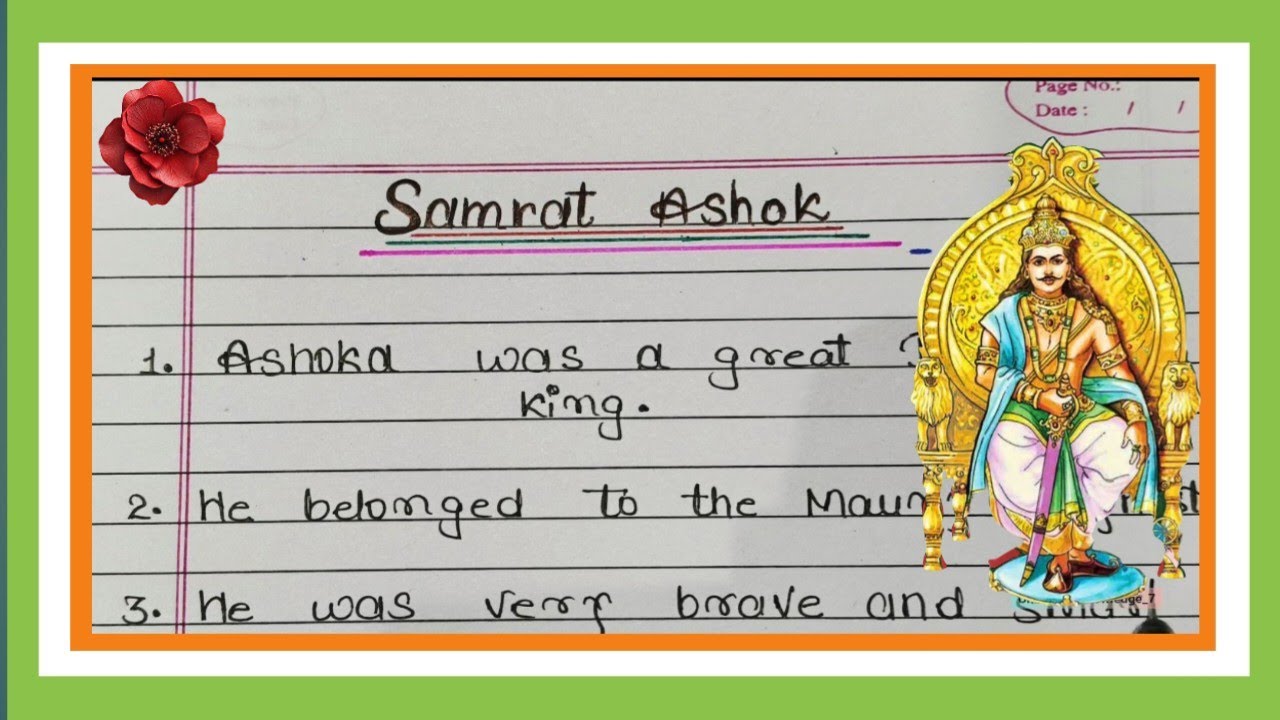 Page No.:
Date : / /
Samrat Ashok
1. Ashoka was a great
king.
2. He belonged to the
3. He was very brave and